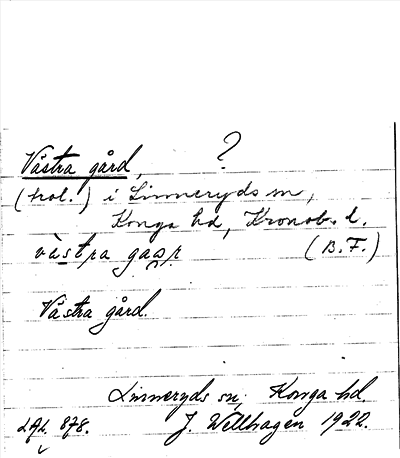 Västra gård, ?
(trol.) i Linneryds sn,
Konga hd, Kronob. l.
västra gaəp (B.F.)
Västra gård.
Linneryds sn, Konga hd.
LAL 878. J. Wellhagen 1922.